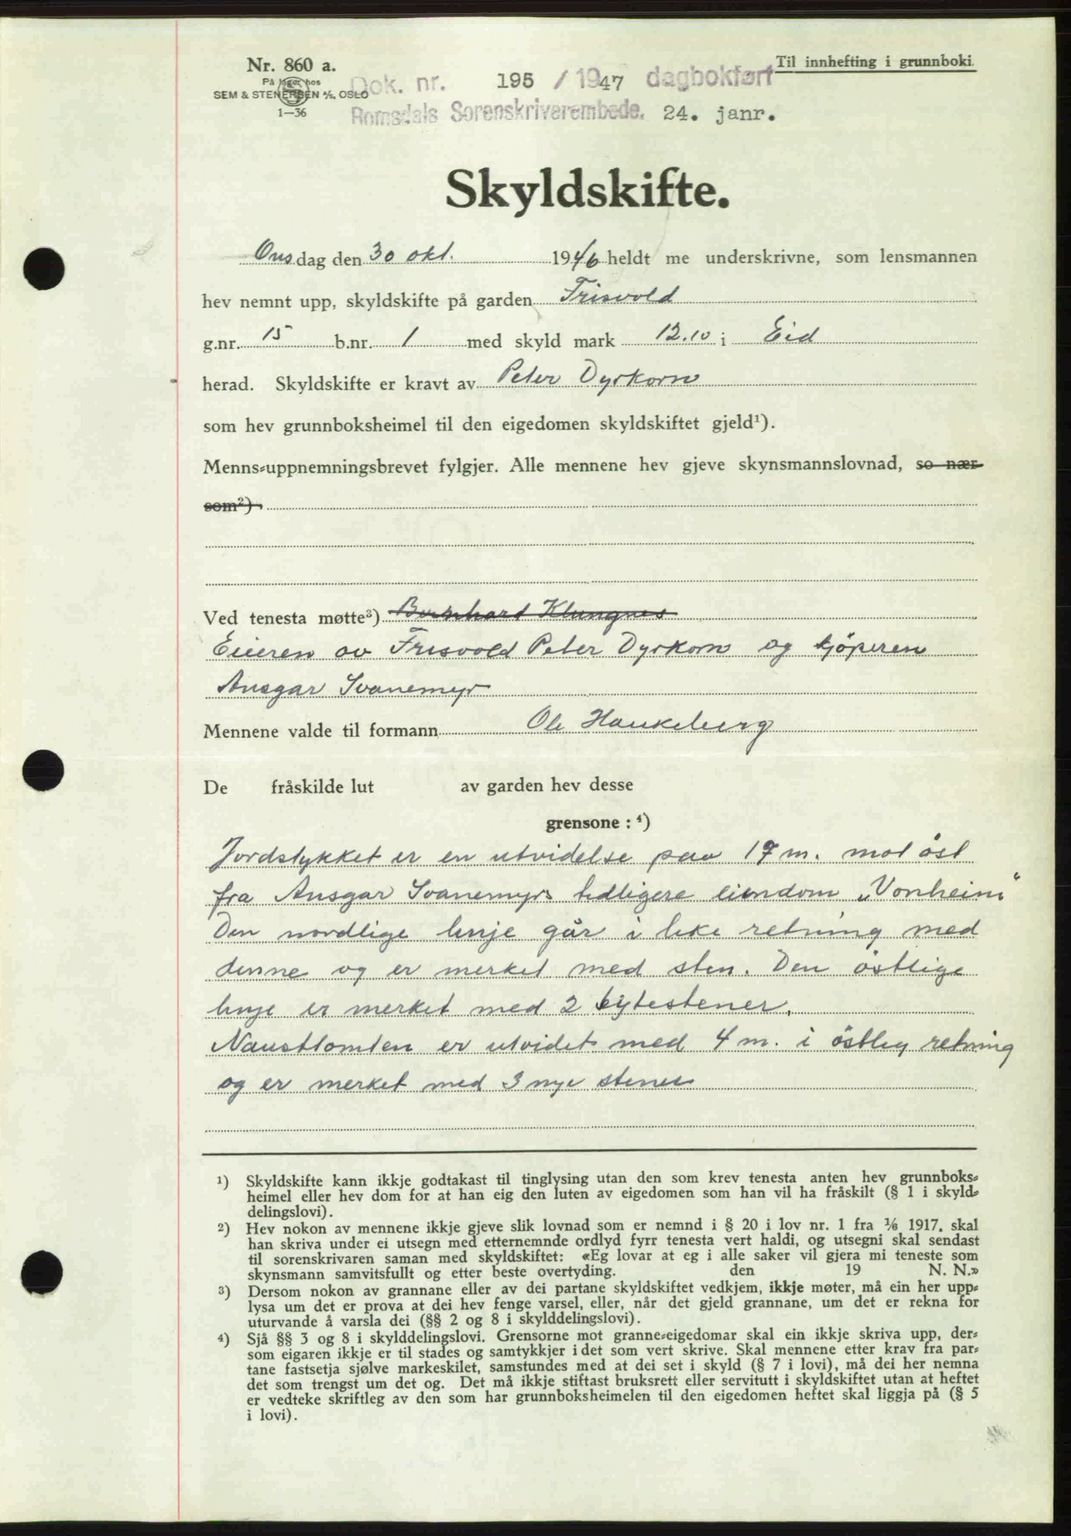 Nr. 860 a.
På lager hos
SEM & STENERSEN A/S, OSLO
1—36
Til innhefting i grunnboki.
Dok. nr. 195 / 1947 dagbokført
Romsdals Sorenskriverembede. 24. janr.
Skyldskifte.
Onsdag den 30 okt. 1946 heldt me underskrivne, som lensmannen
hev nemnt upp, skyldskifte på garden Frisvold
g.nr. 15 b.nr. 1 med skyld mark 12.10 i Eid
herad. Skyldskifte er kravt av Peter Dyrkorn
som hev grunnboksheimel til den eigedomen skyldskiftet gjeld¹).
Menns-uppnemningsbrevet fylgjer. Alle mennene hev gjeve skynsmannslovnad, so nær
som²)
Ved tenesta møtte³) Bernhard Klungnes
Eieren av Frisvold Peter Dyrkorn og kjöperen
Ansgar Svanemyr
Mennene valde til formann Ole Haukeberg
De fråskilde lut av garden hev desse
grensone : ⁴)
Jordstykket er en utvidelse paa 17 m. mot öst
fra Ansgar Svanemyrs tidligere eiendom „Vonheim"
Den nordlige linje går i like retning med
denne og er merket med sten. Den östlige
linje er merket med 2 bytestener.
Nausttomten er utvidet med 4 m. i östleg retning
og er merket med 3 nye stener
¹) Skyldskifte kann ikkje godtakast til tinglysing utan den som krev tenesta anten hev grunnboks-
heimel eller hev dom for at han eig den luten av eigedomen som han vil ha fråskilt (§ 1 i skyld-
delingslovi).
²) Hev nokon av mennene ikkje gjeve slik lovnad som er nemnd i § 20 i lov nr. 1 fra 1/6 1917, skal
han skriva under ei utsegn med etternemnde ordlyd fyrr tenesta vert haldi, og utsegni skal sendast
til sorenskrivaren saman med skyldskiftet: «Eg lovar at eg i alle saker vil gjera mi teneste som
skynsmann samvitsfullt og etter beste overtyding. den 19 N. N.»
³) Dersom nokon av grannane eller av dei partane skyldskiftet vedkjem, ikkje møter, må ein her upp-
lysa um det er prova at dei hev fenge varsel, eller, når det gjeld grannane, um det er rekna for
uturvande å varsla dei (§§ 2 og 8 i skylddelingslovi).
⁴) Sjå §§ 3 og 8 i skylddelingslovi. Grensorne mot granne-eigedomar skal ein ikkje skriva upp, der-
som eigaren ikkje er til stades og samtykkjer i det som vert skrive. Skal mennene etter krav fra par-
tane fastsetja sjølve markeskilet, samstundes med at dei set i skyld (§ 7 i lovi), må dei her nemna
det som trengst um det og. Det må ikkje stiftast bruksrett eller servitutt i skyldskiftet utan at heftet
er vedteke skriftleg av den som har grunnboksheimelen til den eigedomen heftet skal liggja på (§ 5
i lovi).